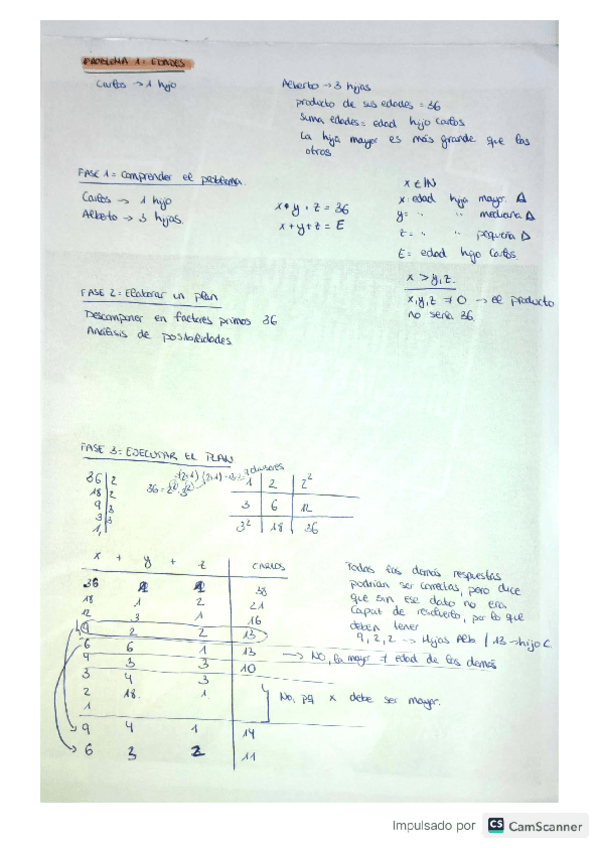 PROBLEMA 1: EDADES
Carlos → 1 hijo
Alberto → 3 hijas
producto de sus edades = 36
Suma edades = edad hijo Carlos
La hija mayor es más grande que las
otras
FASE 1 = Comprender el problema.
Carlos → 1 hijo
Alberto → 3 hijas.
x · y · z = 36
x + y + z = E
x ∈ IN
x: edad hija mayor. A
y = " " mediana A
z = " " pequeña A
E = edad hijo Carlos
x > y, z.
x, y, z ≠ 0 → el producto
no sería 36.
FASE 2: Elaborar un plan
Descomponer en factores primos 36
Análisis de posibilidades
FASE 3: EJECUTAR EL PLAN
36 | 2
18 | 2
9 | 3
3 | 3
1,
36 = 2² · 3²
divisores
1 | 2 | 2²
3 | 6 | 12
3² | 18 | 36
x + y + z | CARLOS
36 1 1 38
18 1 2 21
12 3 1 16
9 2 2 13
6 6 1 13
4 3 3 10
3 4 3
2 18. 1.
1
9 4 1 14
6 3 2 11
Todas las demás respuestas
podrían ser correctas, pero dice
que sin ese dato no era
capaz de resolverlo, por lo que
deben tener
9, 2, 2 → Hijas Alb / 13 → hijo C.
→ No, la mayor ≠ edad de las demás
No, pq x debe ser mayor.
Impulsado por CS CamScanner